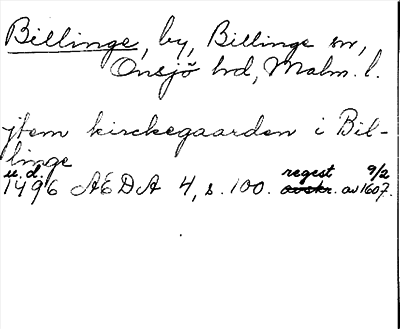 Billinge, by, Billinge sn,
Onsjö hd, Malm. l.
jtem kirckegaarden i Bil-
linge
u.d.
1496 AEDA 4, s. 100. regest avskr. av 9/2 1607.